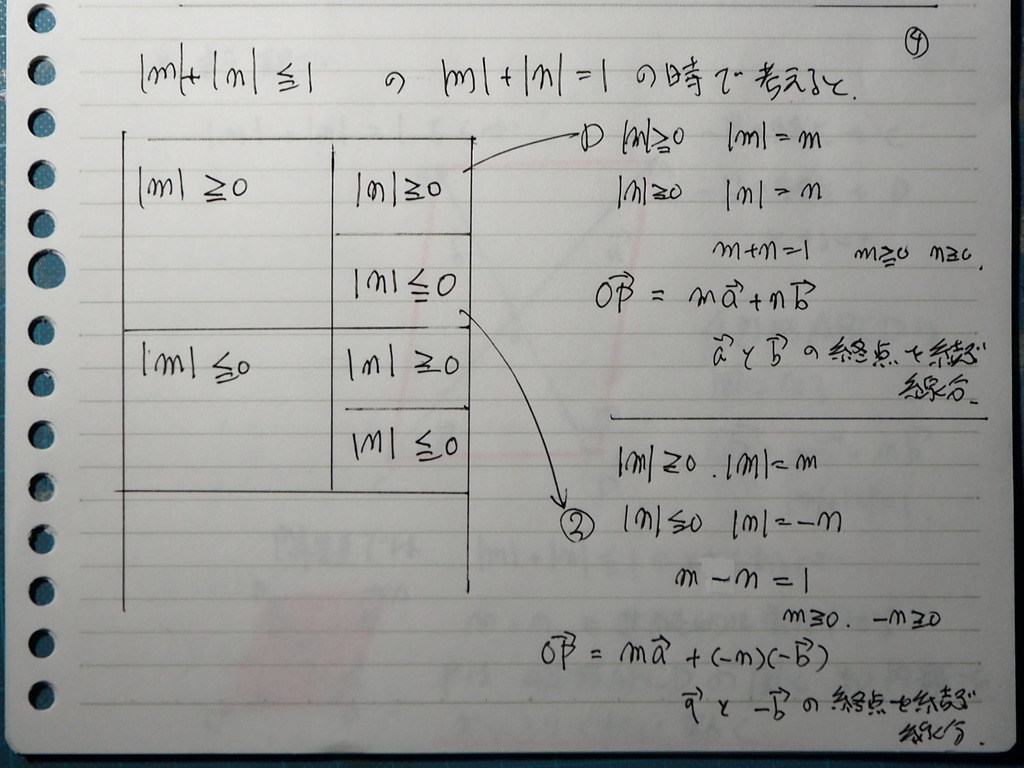 ④
|m|+|n|≦1 の |m|+|n|=1 の時で考えると、
|m|≧0
|n|≧0
|n|≦0
|m|≦0
|n|≧0
|n|≦0
① |m|≧0 |m|=m
|n|≧0 |n|=n
m+n=1 m≧0 n≧0.
OP→ = ma→+nb→
a→とb→の終点を結ぶ
線分.
|m|≧0. |m|=m
② |n|≦0 |n|=-n
m-n=1
m≧0. -n≧0
OP→ = ma→+(-n)(-b→)
a→と-b→の終点を結ぶ
線分.